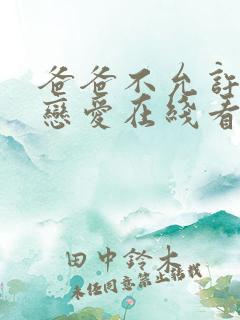 爸爸不允許
戀愛在綫看
田中鈴木
未任同意禁止轉載